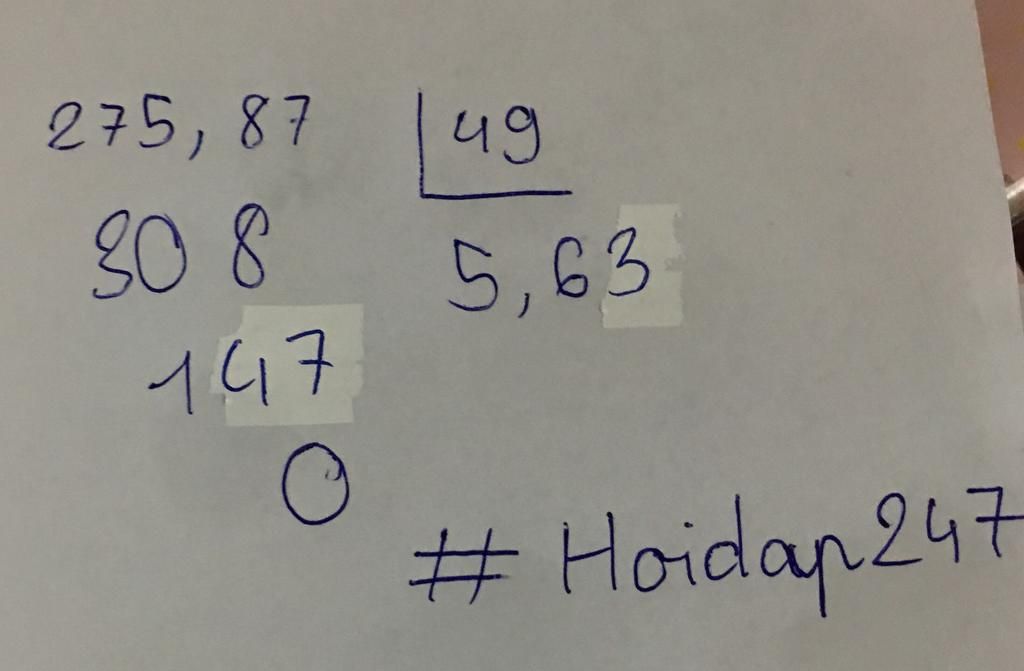 275,87 49
308 5,63
147
0
# Hoidap247